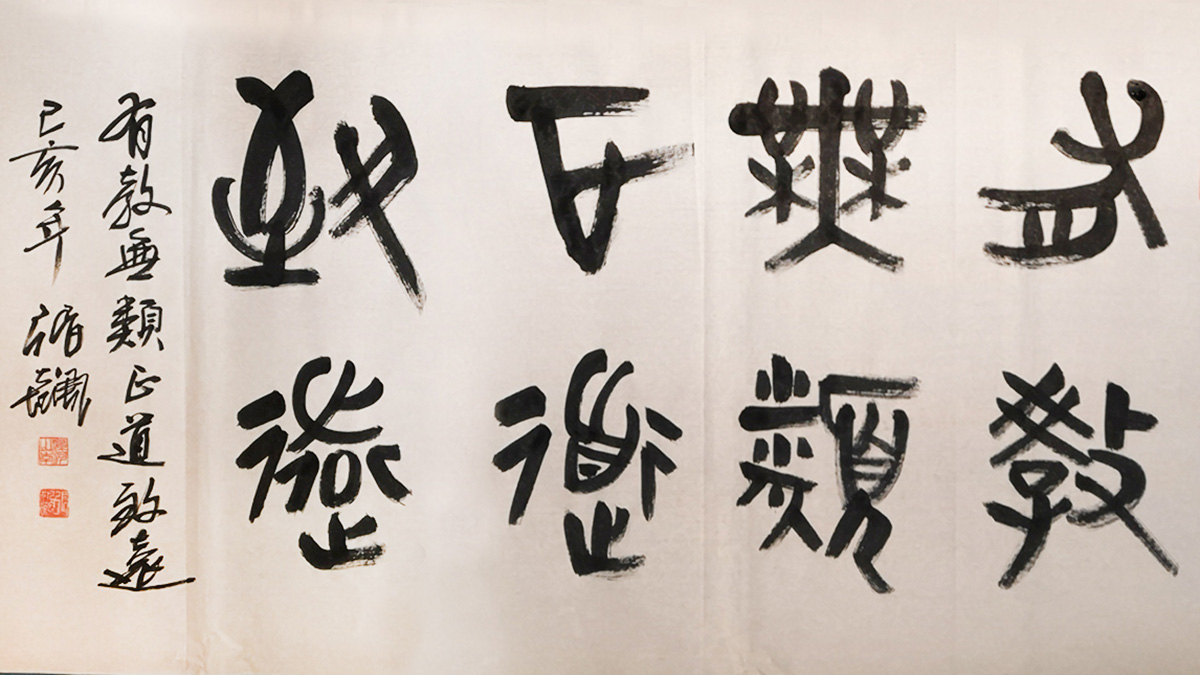 有教
無類
正道
致遠
有教無類正道致遠
己亥年